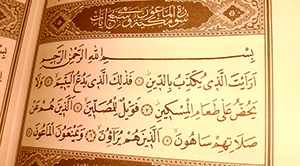 سورة الماعون مكية وهي سبع آيات
بِسْمِ اللّٰهِ الرَّحْمٰنِ الرَّحِيمِ
اَرَاَيْتَ الَّذِي يُكَذِّبُ بِالدِّينِ ❁ فَذٰلِكَ الَّذِي يَدُعُّ الْيَتِيمَ ❁ وَلَا
يَحُضُّ عَلٰى طَعَامِ الْمِسْكِينِ ❁ فَوَيْلٌ لِلْمُصَلِّينَ ❁ اَلَّذِينَ هُمْ عَنْ
صَلَاتِهِمْ سَاهُونَ ❁ اَلَّذِينَ هُمْ يُرَاؤُنَ ❁ وَيَمْنَعُونَ الْمَاعُونَ